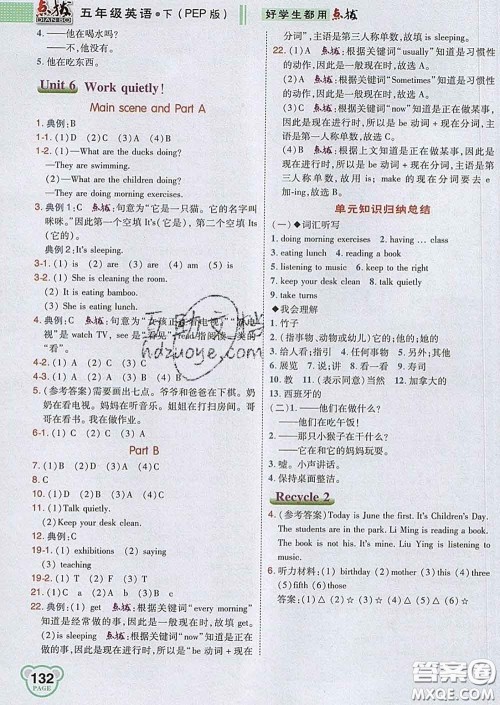 点拨 DIAN BO 五年级英语·下(PEP版)
4. ——他在喝水吗?
——他没在喝水。
5. 他在吃东西。
Unit 6 Work quietly!
Main scene and Part A
1. 典例:B
1-1. (1)D (2)C (3)A (4)B
1-2. (1)—What are the ducks doing?
—They are swimming.
(2)—What are the children doing?
—They are doing morning exercises.
3. 典例1:C 点拨:句意为“它是一只猫。它的名字叫
咪咪。”因此第一个空填It's(它是),第二个空填Its
(它的)。
典例2:It's sleeping.
3-1. (1)is (2)are (3)are (4)is
3-2. (1)She is cleaning the room.
(2)It is eating bamboo.
(3)The girl is eating lunch.
4. 典例:C 点拨:句意为“女孩正在看电视。”“看电
视”是 watch TV, see是“看见” read指阅读类的
“看”。
4-2. (1)A (2)B (3)C (4)A
5. (参考答案)需要画出七点。我爷爷和爸爸在下棋。奶
奶在看电视。妈妈在听音乐。姐姐在打扫房间。哥
哥在看书。我在做作业。
6-1. (1)B (2)B (3)C (4)A
Part B
7. (1)B (2)D (3)C (4)A
10. (1)B (2)D (3)A (4)C
11. (1)Talk quietly.
(2)Keep your desk clean.
12. 典例:C
19-1. (1)exhibitions (2)saying
(3)teaching
19-2. (1)T (2)F (3)T (4)F
21. (1)C (2)A (3)B (4)A
22. 典例:(1)get 点拨:根据关键词“every morning”
知道是经常做的事,因此是一般现在时,故填get。
(2)is sleeping 点拨:根据关键词“now”知道是正
在做的事,因此是现在进行时,所以是be动词+现在
132
PAGE
好学生都用 点拨
分词”,主语是第三人称单数,故填is sleeping。
22. (1)A 点拨:根据关键词“usually”知道是习惯性
的动作,因此是一般现在时,故选A。
(2)B 点拨:根据关键词“Sometimes”知道是习惯性
的动作,因此是一般现在时,故选B。
(3)C 点拨:根据关键词“now”知道是正在做某事,
因此是现在进行时,所以是be动词+现在分词,主
语是第三人称单数,故选C。
(4)B 点拨:根据上文知道是正在做某事,因此是
现在进行时,所以是be动词+现在分词,主语是第
三人称单数,故用is; make的现在分词要去e
加-ing,故选B。
单元知识归纳总结
(一)◆词汇听写
1. doing morning exercises 2. having … class
3. eating lunch 4. reading a book
5. listening to music 6. keep to the right
7. keep your desk clean 8. talk quietly
9. take turns
◆我会理解
1. 竹子
2. (指事物、动物或幼儿)它的;他的;她的
3. 给人看;指引 4. 任何事物 5. 另外;其他
6. 展览 7. 说;讲 8. 有趣的 9. 寿司
10. 教 11. (表示同意)当然 12. 加拿大的
13. 西班牙的
(二)1. ——他们在做什么?
——他们在吃午饭!
2. ——那只小猴子在干什么?
——它在和它的妈妈玩。
3. 嘘。小声讲话。
4. 保持桌面整洁。
Recycle 2
4. (参考答案)Today is June the first. It's Children's Day.
The students are in the park. Li Ming is reading a book.
The teacher is reading a book. Liu Ying is listening to
music.
6. 听力材料:(1)birthday (2)mother (3)this (4)three
(5)fifth (6)those
答案:(1)△ (2)☆ (3)☆ (4)△ (5)△ (6)☆
hdzuoye.com
答案圈
MXQE.COM